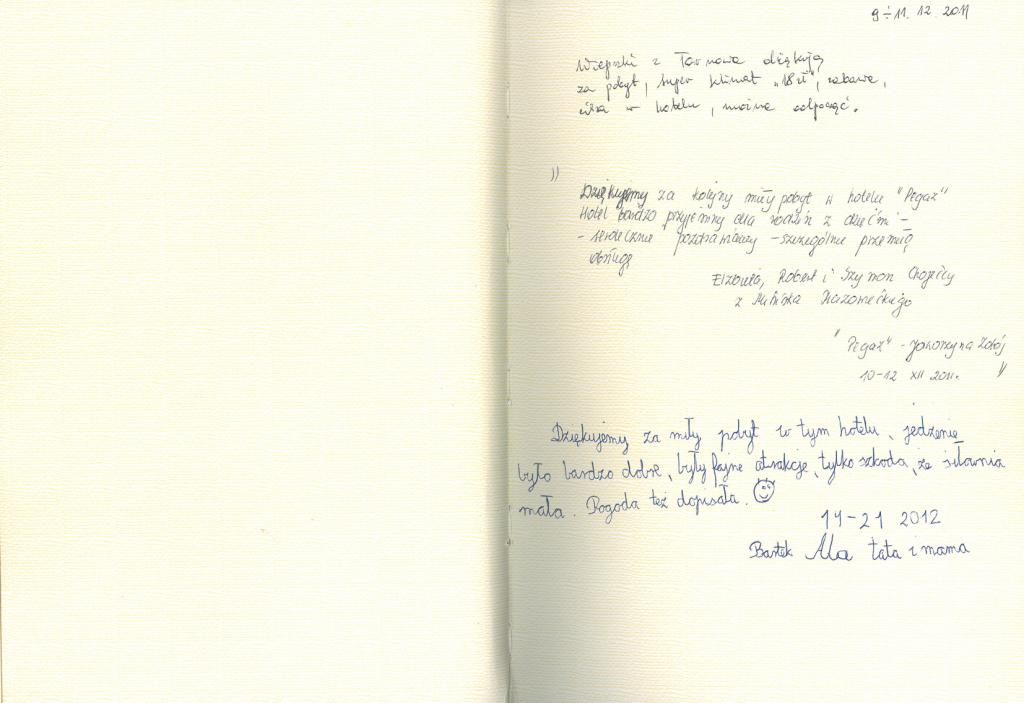 9÷11. 12. 2011
z Tarnowa dziękują
za pobyt, super klimat „18zł”, zabawa,
cisza w hotelu, można odpocząć.
"
Dziękujemy za kolejny miły pobyt w hotelu "Pegaz"
Hotel bardzo przyjemny dla rodzin z dziećmi -
- serdecznie pozdrawiamy - szczególnie przemiłą
obsługę
Elżbieta, Robert i Szymon
z Mińska Mazowieckiego
"Pegaz" - Jaworzyna Zdrój
10-12 XII 2011. "
Dziękujemy za miły pobyt w tym hotelu, jedzenie
było bardzo dobre, były fajne atrakcje, tylko szkoda, że siłownia
mała. Pogoda też dopisała.
14-21 2012
Bartek Ala tata i mama